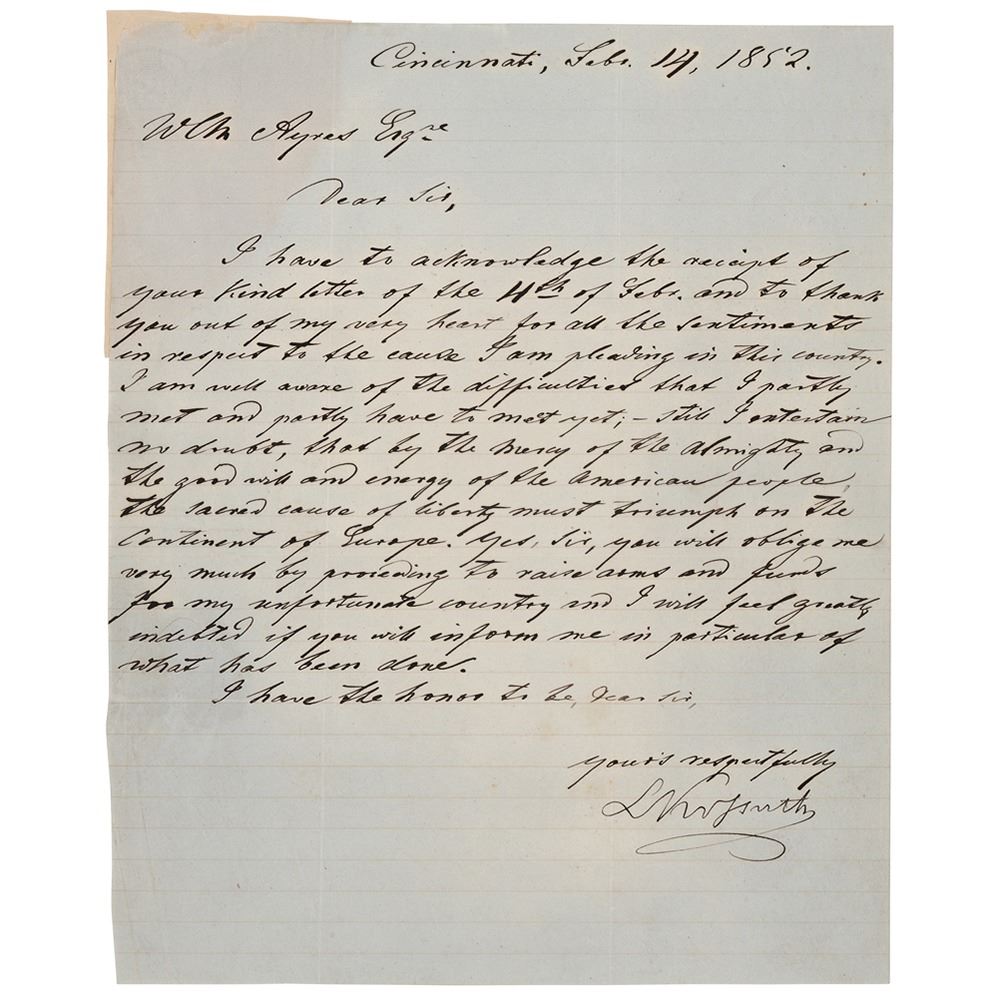 Cincinnati, Febr. 14, 1852.
Wm Ayres Esqre
Dear Sir,
I have to acknowledge the reciept of
your kind letter of the 4th of Febr. and to thank
you out of my very heart for all the sentiments
in respect to the cause I am pleading in this country.
I am well aware of the difficulties that I partly
met and partly have to met yet; - still I entertain
no doubt, that by the mercy of the almighty and
the good will and energy of the American people,
the sacred cause of liberty must triumph on the
Continent of Europe. Yes, Sir, you will oblige me
very much by proceeding to raise arms and funds
for my unfortunate country and I will feel greatly
indebted if you will inform me in particular of
what has been done.
I have the honor to be, Dear Sir,
your's respectfully
L Kossuth